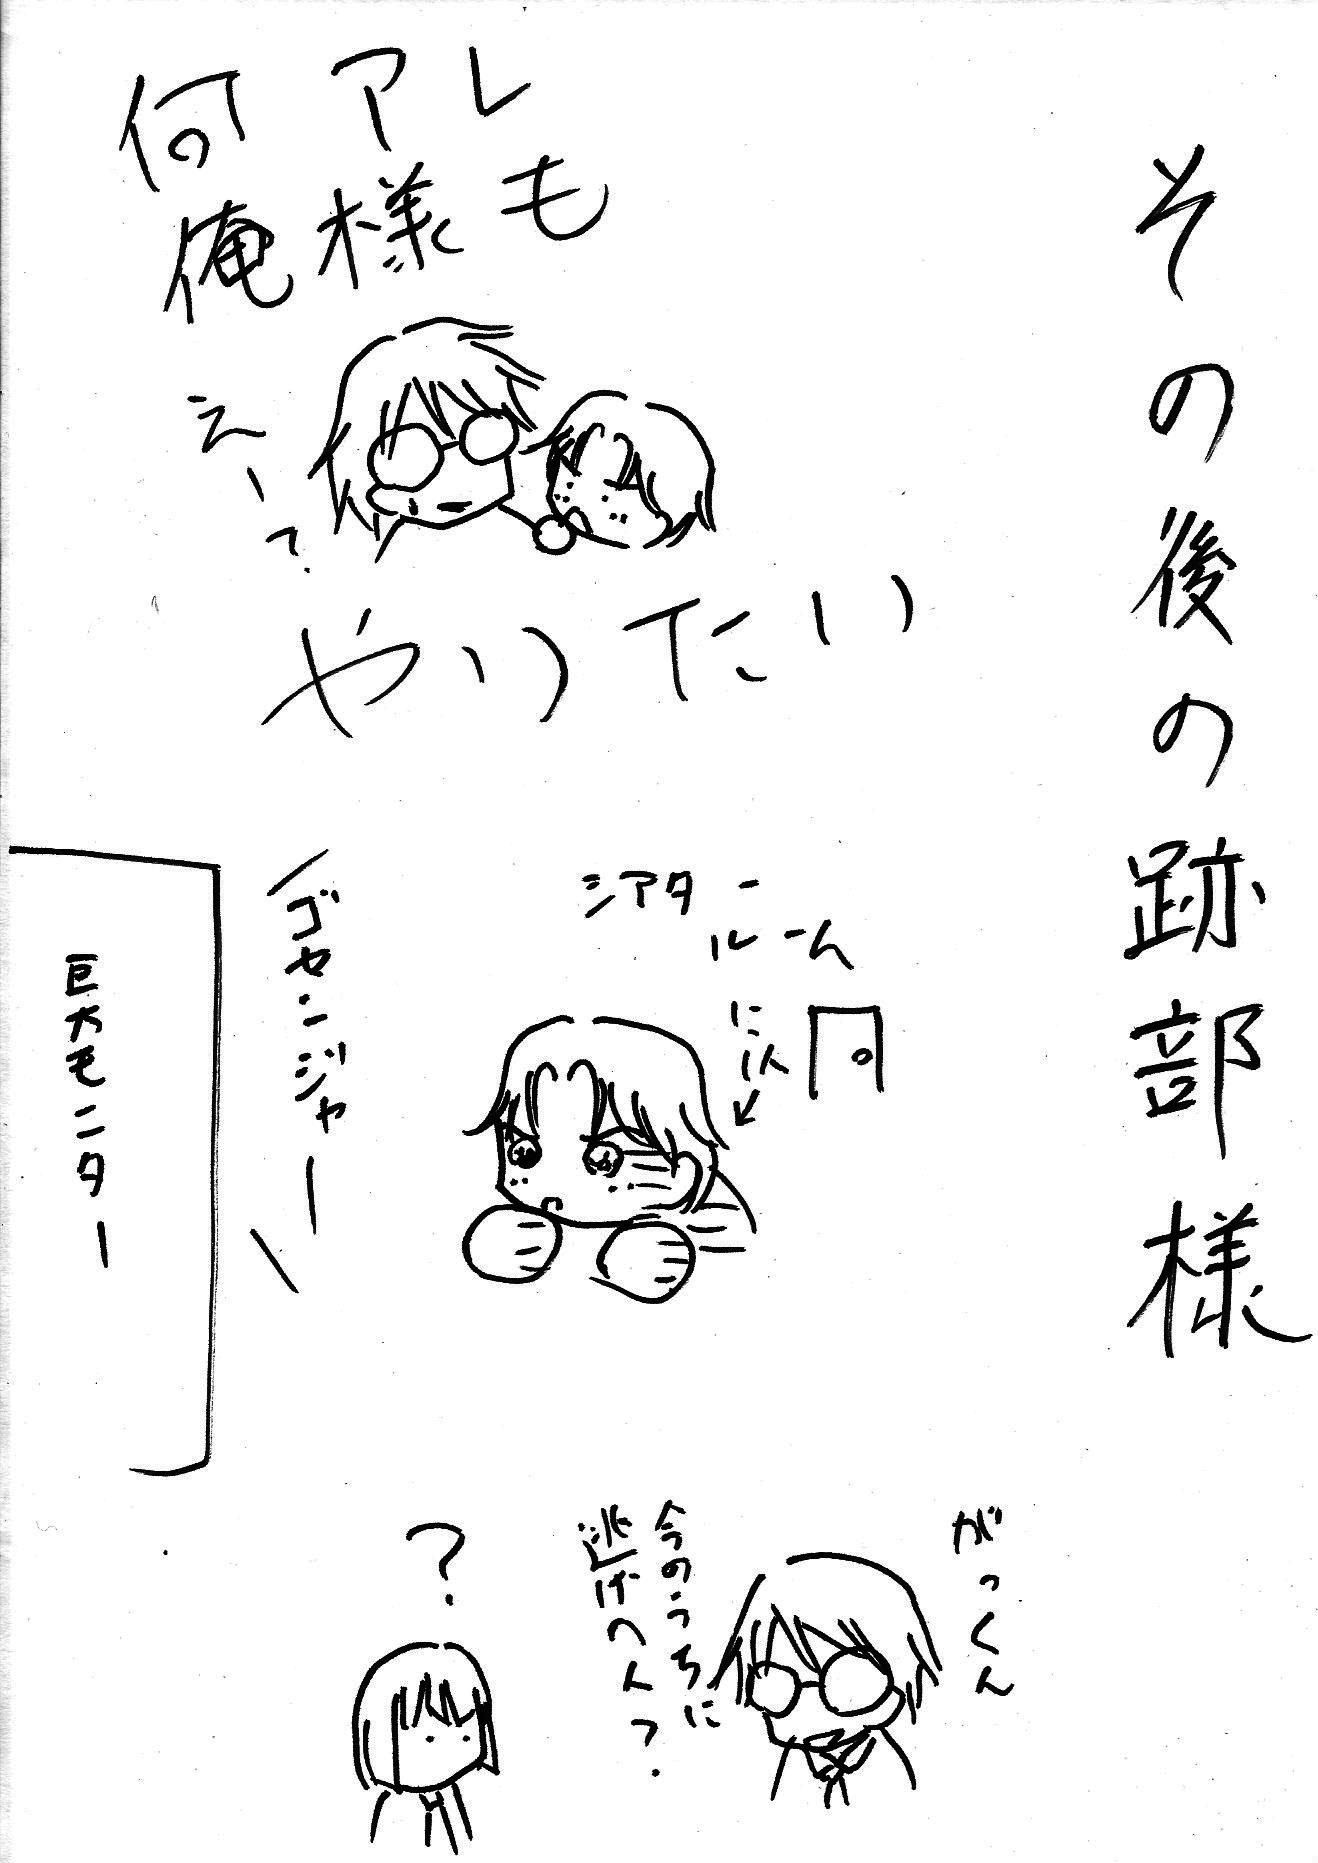 その後の跡部様
何アレ
俺様も
やりたい
えー?
シアター
ルーム
に以
ゴセンジャー
巨大モニター
がっくん
今のうちに
逃げへん?
?